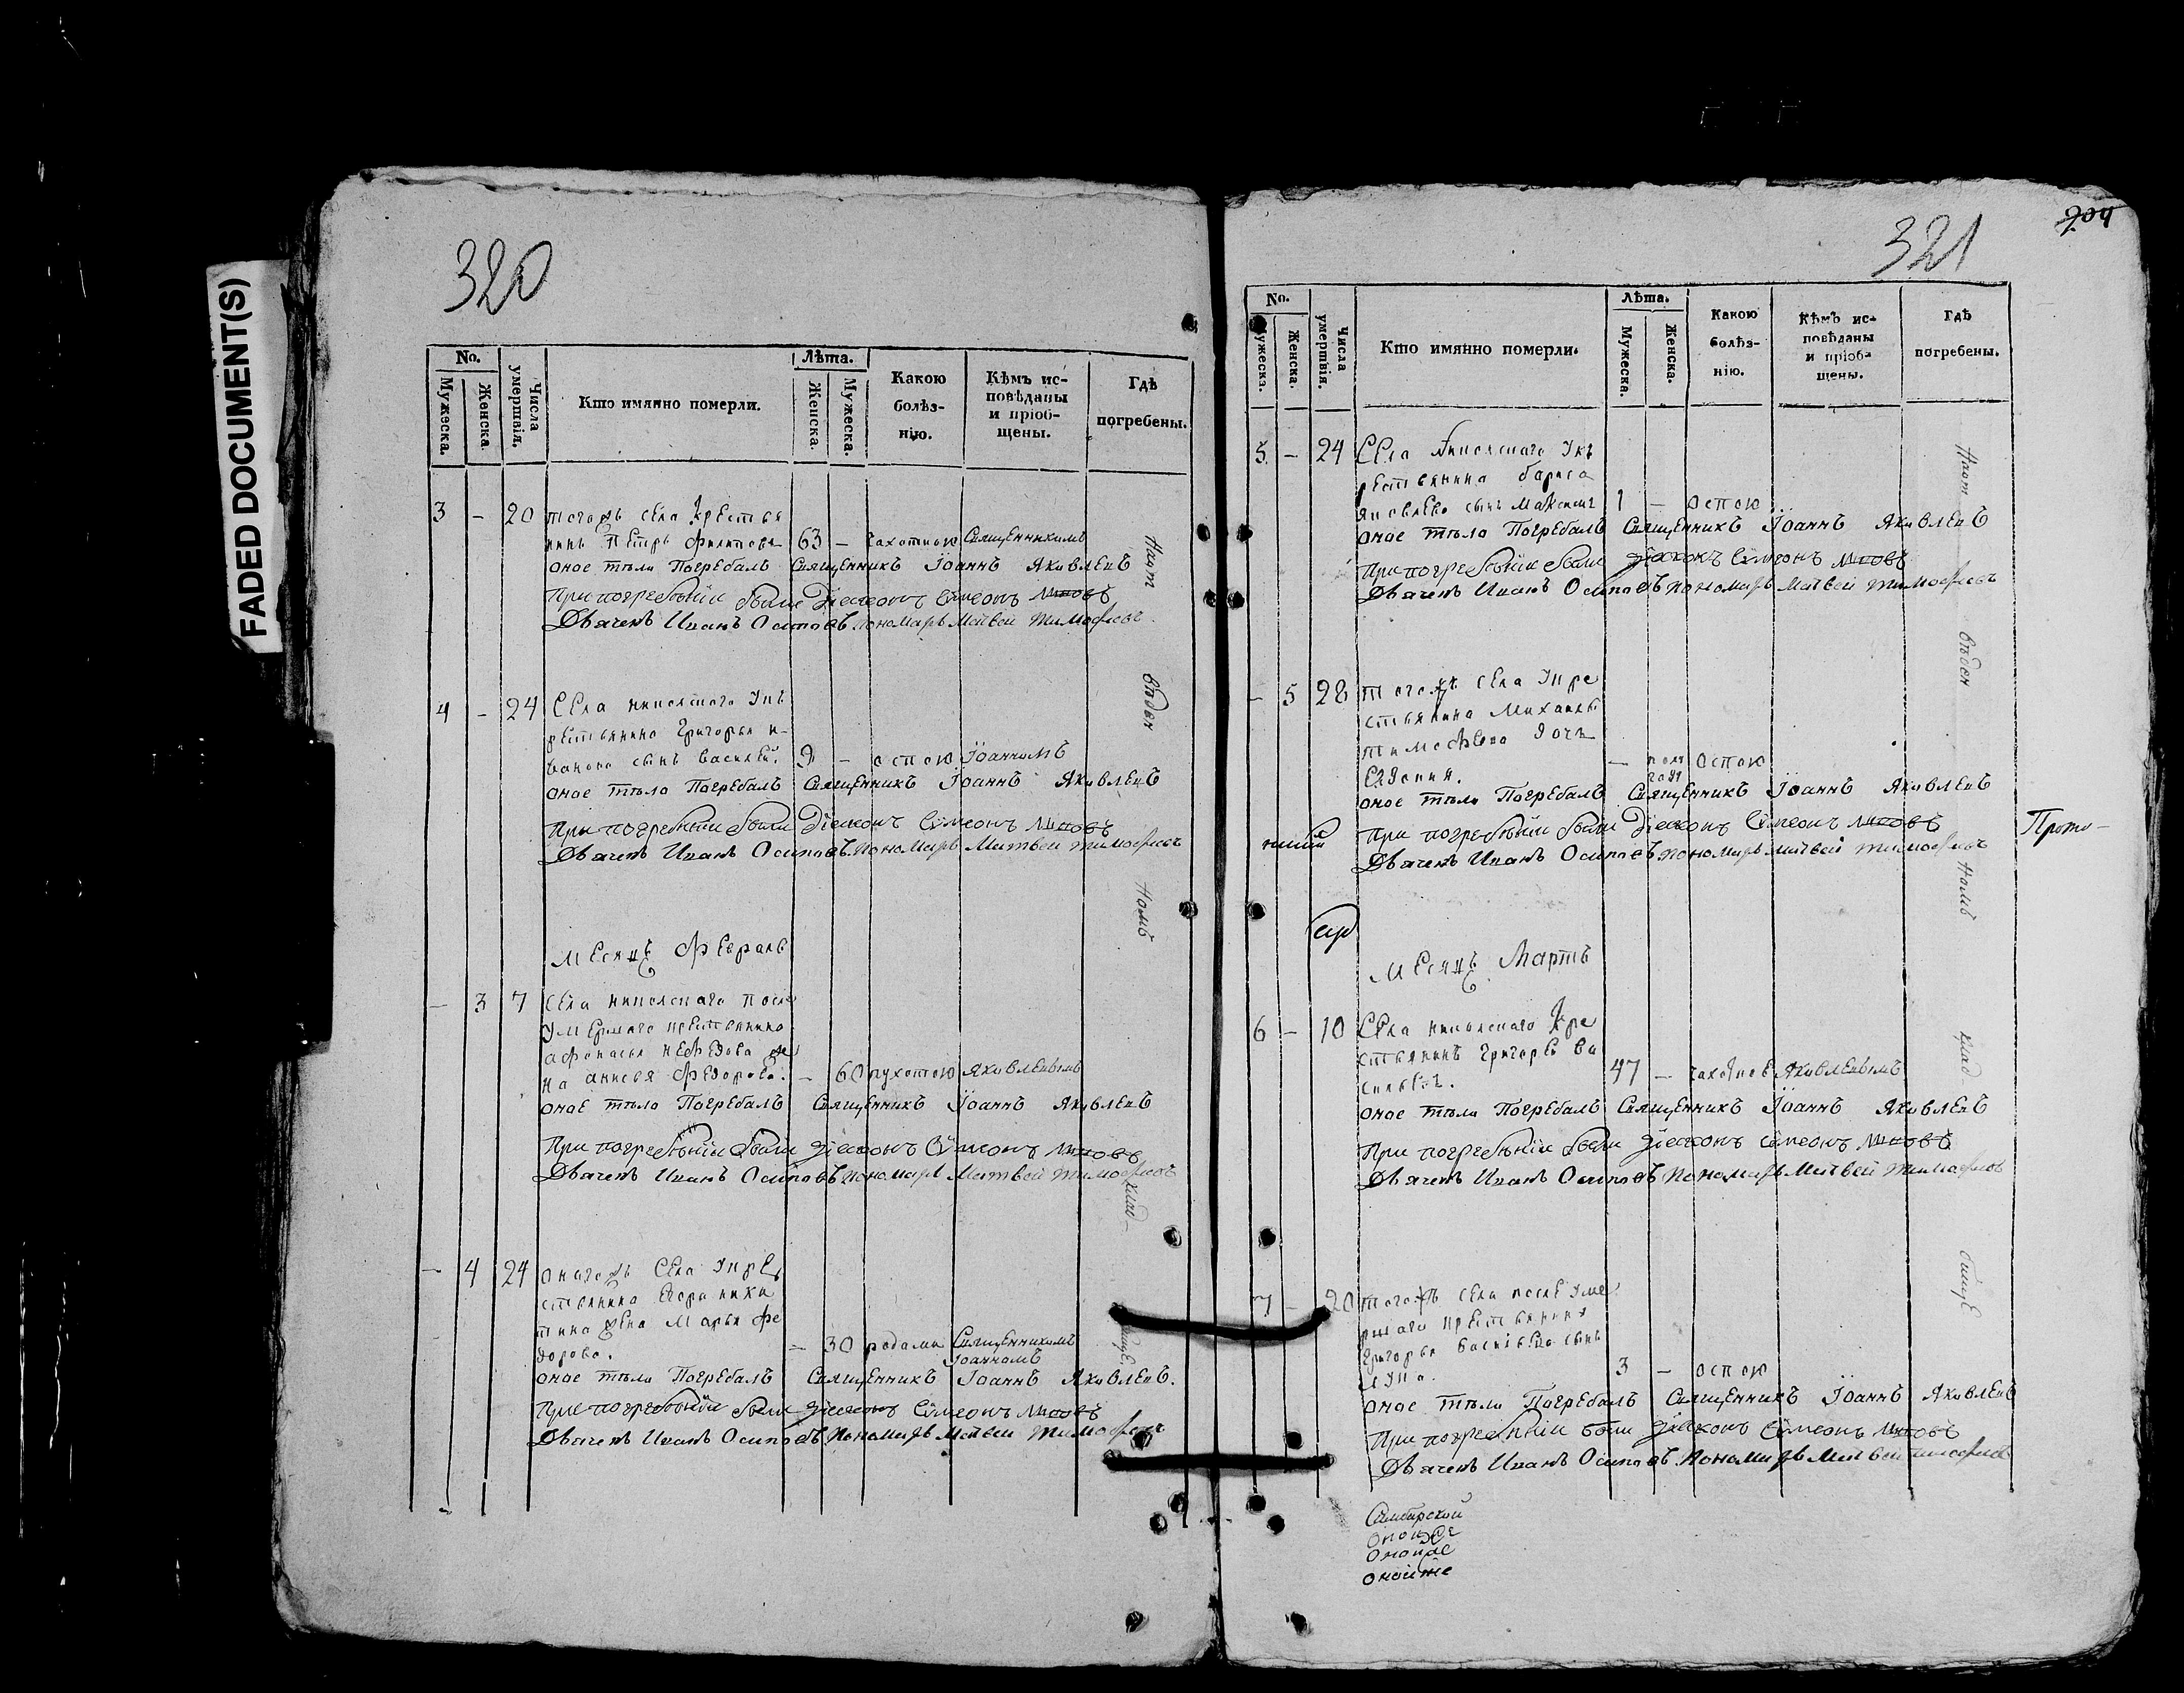 FADED DOCUMENT(S)
320
No.
Мужеска.
Женска.
Числа умертвія.
Кто имянно померли.
Лѣта.
Женска.
Мужеска.
Какою болѣз-
нію.
Кѣмъ ис-
повѣданы
и пріоб-
щены.
Гдѣ
погребены.
3 - 20 тогожъ села крестья
нинъ Петръ Филипов 63 - чахоткою Священникомъ
оное тѣло Погребалъ Священникъ Іоаннъ Яковлевъ
При погребѣніи были Діаконъ Сѵмеонъ
Дьячекъ Иванъ Осиповъ Пономарь Матвей Тимофеевъ
4 - 24 Села никольского укъ
рестьянина Григорья и-
ванова сынъ Василей. - оспою Іоанномъ
оное тѣло Погребалъ Священникъ Іоаннъ Яковлевъ
При погребѣніи были Діаконъ Сѵмеонъ
Дьячекъ Иванъ Осиповъ Пономарь Матвей Тимофеевъ
Месяцъ Февраль
- 3 7 Села никольскаго после
умершаго крестьянина
афонасья нефедова же
на анисья Федорова. - 60 Яковлевымъ
оное тѣло Погребалъ Священникъ Іоаннъ Яковлевъ
При погребѣніи были Діаконъ Сѵмеонъ
Дьячекъ Иванъ Осиповъ Пономарь Матвей Тимофеевъ
- 4 24 оногожъ Села укре
стьянина Егора ники
тина жена Марья Фе
дорова. - 30 родами Священникомъ
Іоанномъ
оное тѣло Погребалъ Священникъ Іоаннъ Яковлевъ.
При погребѣніи были Діаконъ Сѵмеонъ
Дьячекъ Иванъ Осиповъ Пономарь Матвей Тимофеевъ
321
No.
Мужеска.
Женска.
Числа умертвія.
Кто имянно померли.
Лѣта.
Мужеска.
Женска.
Какою
болѣз-
нію.
Кѣмъ ис-
повѣданы
и пріоб-
щены.
Гдѣ
погребены.
5 - 24 Села никольскаго укъ
рестьянина бориса
яковлева сынъ Максимъ 1 - оспою
оное тѣло Погребалъ Священникъ Іоаннъ Яковлевъ
При погребѣніи были Діаконъ Сѵмеонъ
Дьячекъ Иванъ Осиповъ Пономарь Матвей Тимофеевъ
- 5 28 тогожъ села укре
стьянина Михаилы
тимофеева дочь
Евдокия. - пол
года оспою
оное тѣло Погребалъ Священникъ Іоаннъ Яковлевъ
При погребѣніи были Діаконъ Сѵмеонъ
Дьячекъ Иванъ Осиповъ Пономарь Матвей Тимофеевъ
Прото-
Месяцъ Мартъ
6 - 10 Села никольскаго кре
стьянинъ григорей ва
сильевъ. 47 - Яковлевымъ
оное тѣло Погребалъ Священникъ Іоаннъ Яковлевъ
При погребѣніи были Діаконъ Сѵмеонъ
Дьячекъ Иванъ Осиповъ Пономарь Матвей Тимофеевъ
7 - 20 тогожъ села после уме
ршаго крестьянина
григорья васильева сынъ
лука. 3 - оспою
оное тѣло Погребалъ Священникъ Іоаннъ Яковлевъ
При погребѣніи были Діаконъ Сѵмеонъ
Дьячекъ Иванъ Осиповъ Пономарь Матвей Тимофеевъ
Симбирской
онойже
онойже
онойже